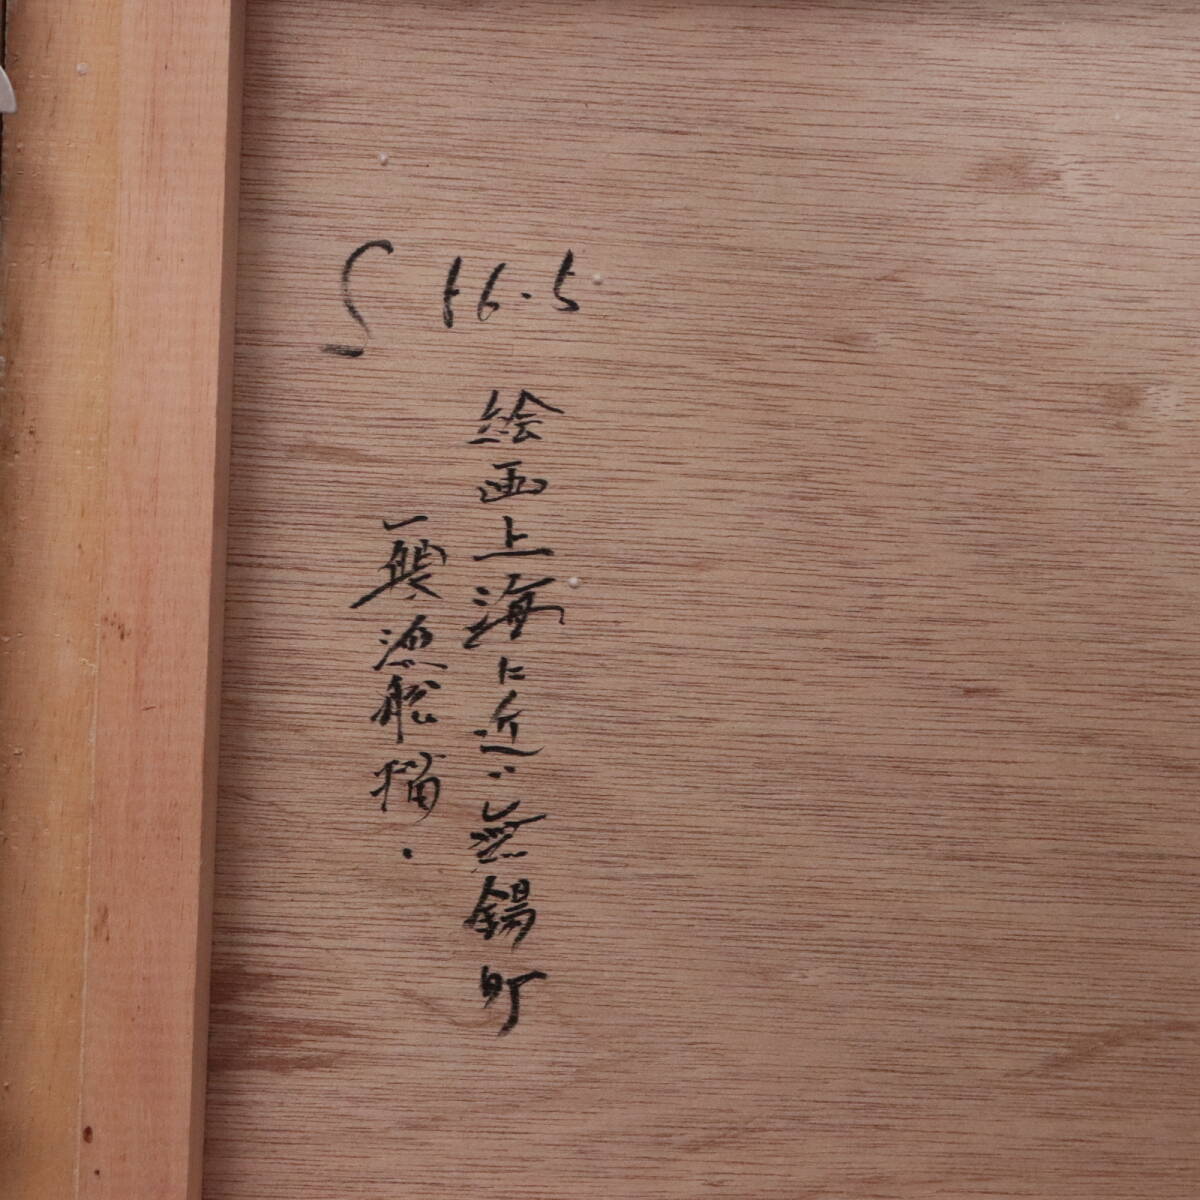 S 16.5
絵画上海に近い無錫町
一艘漁船描.